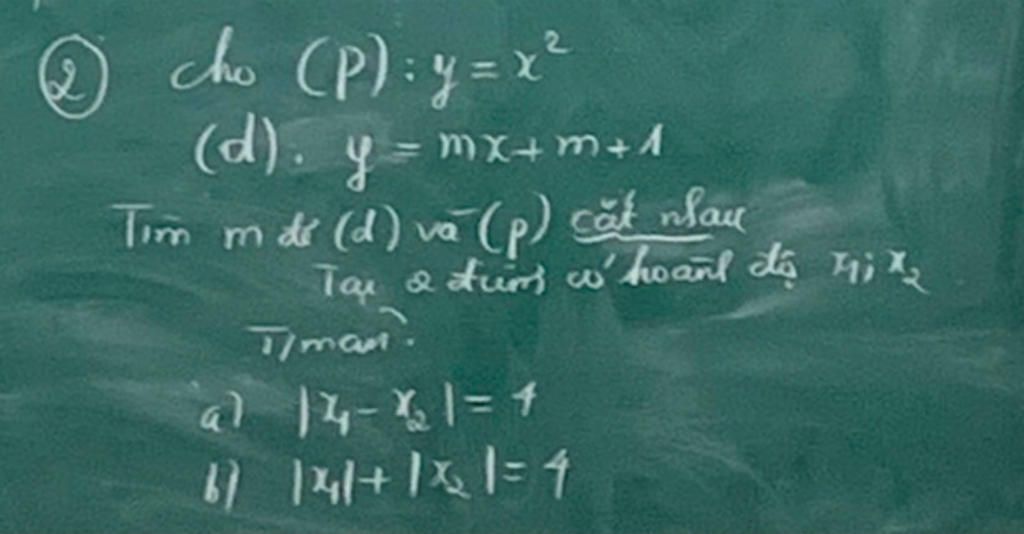 ② cho (P): y = x²
(d). y = mx + m + 1
Tìm m để (d) và (p) cắt nhau
Tại 2 điểm có hoành độ x₁; x₂
T/mãn:
a) |x₁ - x₂| = 4
b) |x₁| + |x₂| = 4